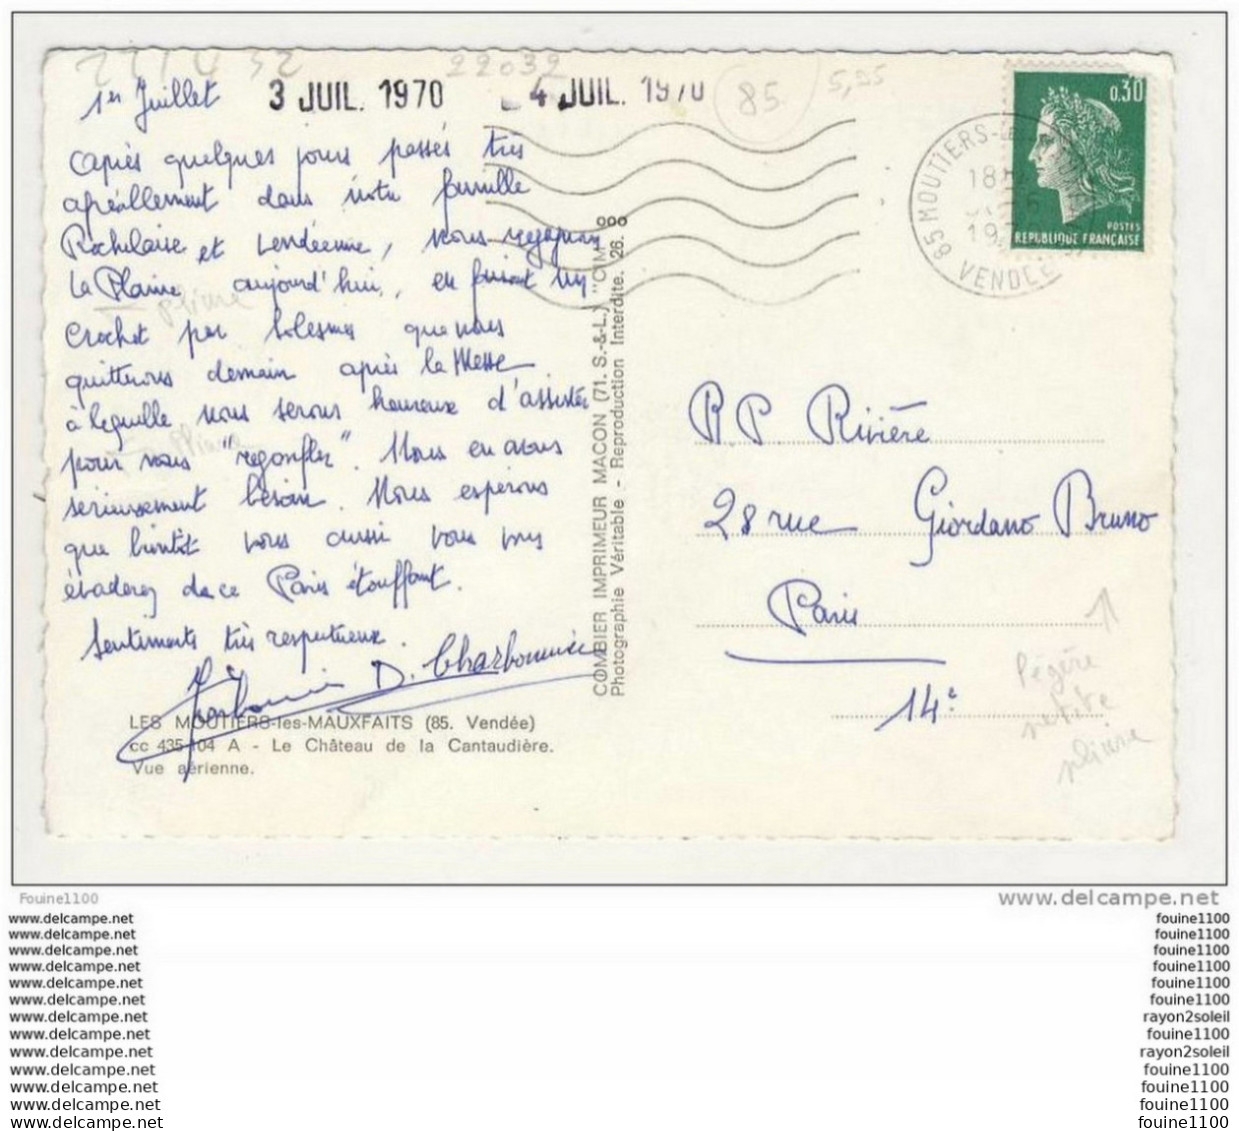 22032
85
5,35
1er Juillet
3 JUIL. 1970
4 JUIL. 1970
après quelques jours passés très
agréablement dans notre famille
Rochelaise et Vendéenne, nous regagnons
La Plaine aujourd'hui, en faisant un
crochet par Solesmes que nous
quitterons demain après la Messe
à laquelle nous serons heureux d'assister
pour nous "regonfler". Nous en avons
sérieusement besoin. Nous espérons
que bientôt vous aussi vous
évaderez de ce Paris étouffant.
Sentiments très respectueux.
D. Charbonnier
LES MOUTIERS-les-MAUXFAITS (85. Vendée)
cc 435-104 A - Le Château de la Cantaudière.
Vue aérienne.
COMBIER IMPRIMEUR MACON (71. S.-&-L.) "CIM"
Photographie Véritable - Reproduction Interdite. 26.
0.30
POSTES
REPUBLIQUE FRANÇAISE
85 MOUTIERS-
18
VENDEE
R.P. Rivière
28 rue Giordano Bruno
Paris
14e
légère
petite
pliure
pliure
Fouine1100
www.delcampe.net
www.delcampe.net
fouine1100
www.delcampe.net
fouine1100
www.delcampe.net
fouine1100
www.delcampe.net
fouine1100
www.delcampe.net
fouine1100
www.delcampe.net
fouine1100
www.delcampe.net
rayon2soleil
www.delcampe.net
fouine1100
www.delcampe.net
rayon2soleil
www.delcampe.net
fouine1100
www.delcampe.net
fouine1100
www.delcampe.net
fouine1100
www.delcampe.net
fouine1100